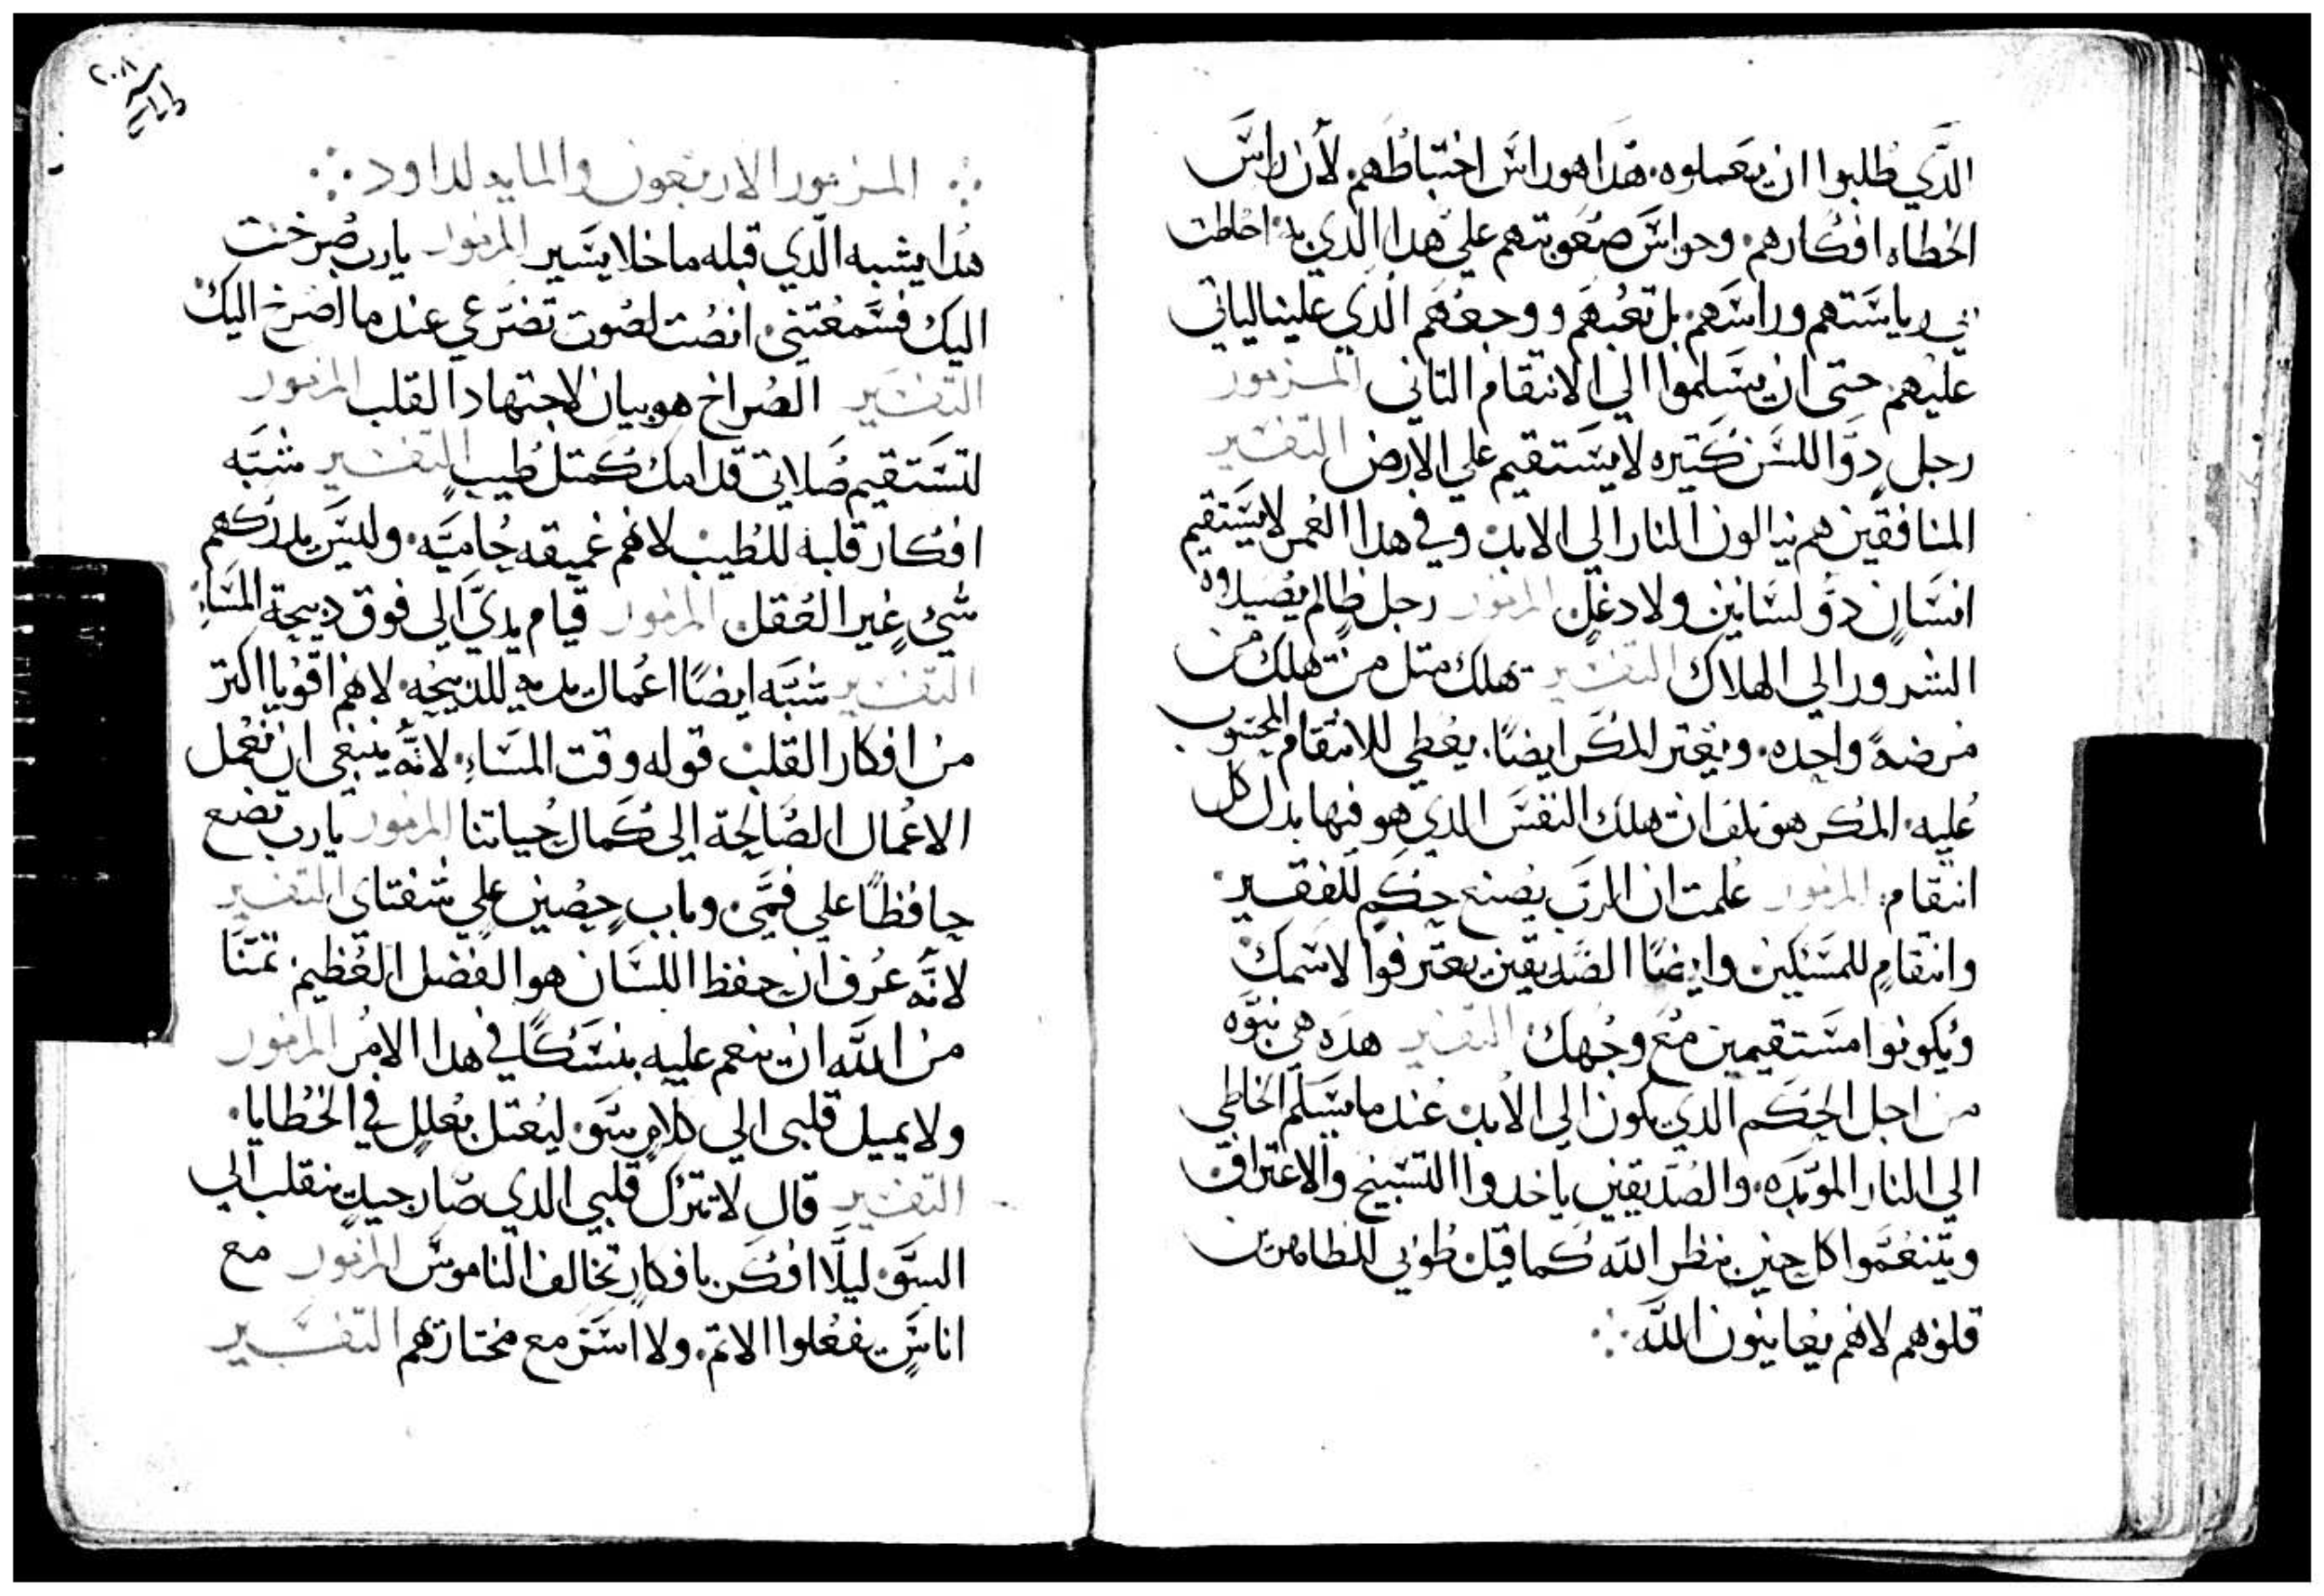 الذي طلبوا ان يعملوه. هدا هو راس اختباطهم. لان راس
الخطاه افكارهم. وحواس صعوبتهم علي هدا الدي به احاطت
بي رياستهم وراسهم. بل تعبهم ووجعهم الدي علينا ياتي
عليهم حتى ان يسلموا الي الانتقام التاني المزمور
رجل دوا اللسن كتيره لا يستقيم علي الارض التفسير
المنافقين هم ينالون النار الي الابد. وفي هدا العمر لا يستقيم
انسان دو لسانين ولا دغل المزمور رجل ظالم يصيدوه
الشرور الي الهلاك التفسير تهلك متل من تهلك من
مرضة واحده. ويعتبر المكر ايضا. يعطي للانتقام المحتوب
عليه. المكر هو تلفان هلك النفس الدي هو فيها بدل كل
انتقام. المزمور علمت ان الرب يصنع حكم للفقير.
وانتقام للمسكين. وايضا الصديقين يعترفوا لاسمك
ويكونوا مستقيمين مع وجهك. التفسير هده هي نبوه
من اجل الحكم الدي يكون الي الابد. عند ما يسلم الخاطي
الي النار الموبده. والصديقين ياخدوا التسبيح والاعتراف
ويتنعموا كل حين بنظر الله كما قيل طوبي للطاهرين
قلوبهم لانهم يعاينون الله
٢٠٨
المزمور الاربعون والمايه لداود
هدا يشبه الدي قبله ما خلا يسير المزمور يارب صرخت
اليك فسمعتني. انصت لصوت تضرعي عند ما اصرخ اليك
التفسير الصراخ هو بيان لاجتهاد القلب المزمور
لتستقيم صلاتي قدامك كمتل طيب التفسير شبه
افكار قلبه للطيب لانهم عميقه حاميه. وليس يدركهم
شي غير العقل المزمور قيام يدي الي فوق دبيحة المساء.
التفسير شبه ايضا اعمال يديه للدبيحه. لانهم اقويا اكتر
من افكار القلب قوله وقت المساء. لانه ينبغي ان نعمل
الاعمال الصالحة الى كمال حياتنا المزمور يارب تضع
حافظا علي فمي. وباب حصين علي شفتاي التفسير
لانه عرف ان حفظ اللسان هو الفضل العظيم تمنا
من الله ان ينعم عليه بنسكا في هدا الامر المزمور
ولا يميل قلبي الي كلام سو. ليعتل بعلل في الخطايا.
التفسير قال لا تترك قلبي الدي صار جيد ينقلب الي
السو. ليلا افكر بافكار تخالف الناموس المزمور مع
اناس يفعلوا الاتم. ولا اشترك مع مختارتهم التفسير